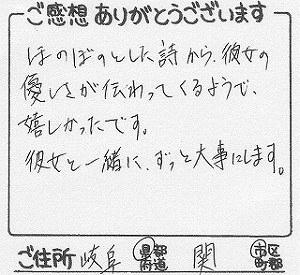 ご感想ありがとうございます
ほのぼのとした詩から、彼女の
優しさが伝わってくるようで、
嬉しかったです。
彼女と一緒に、ずっと大事にします。
ご住所 岐阜 県都府道 関 市区町郡